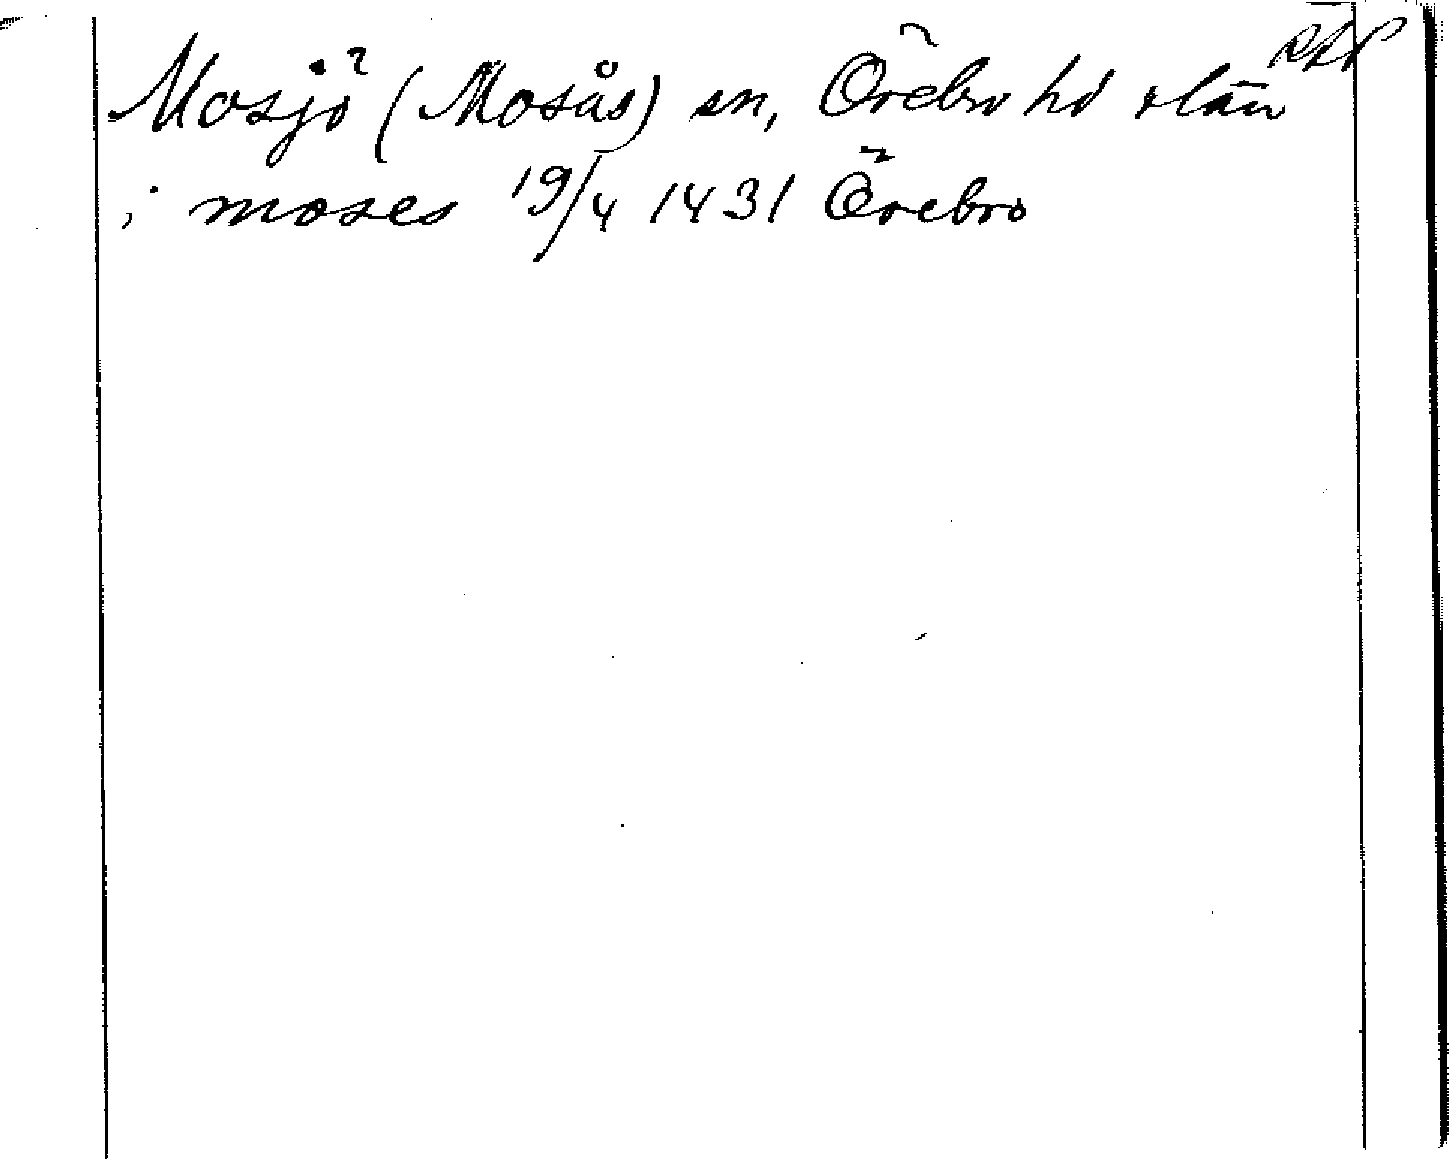 RAP
Mosjö (Mosås) sn, Örebro hd o län
i moses 19/4 1431 Örebro